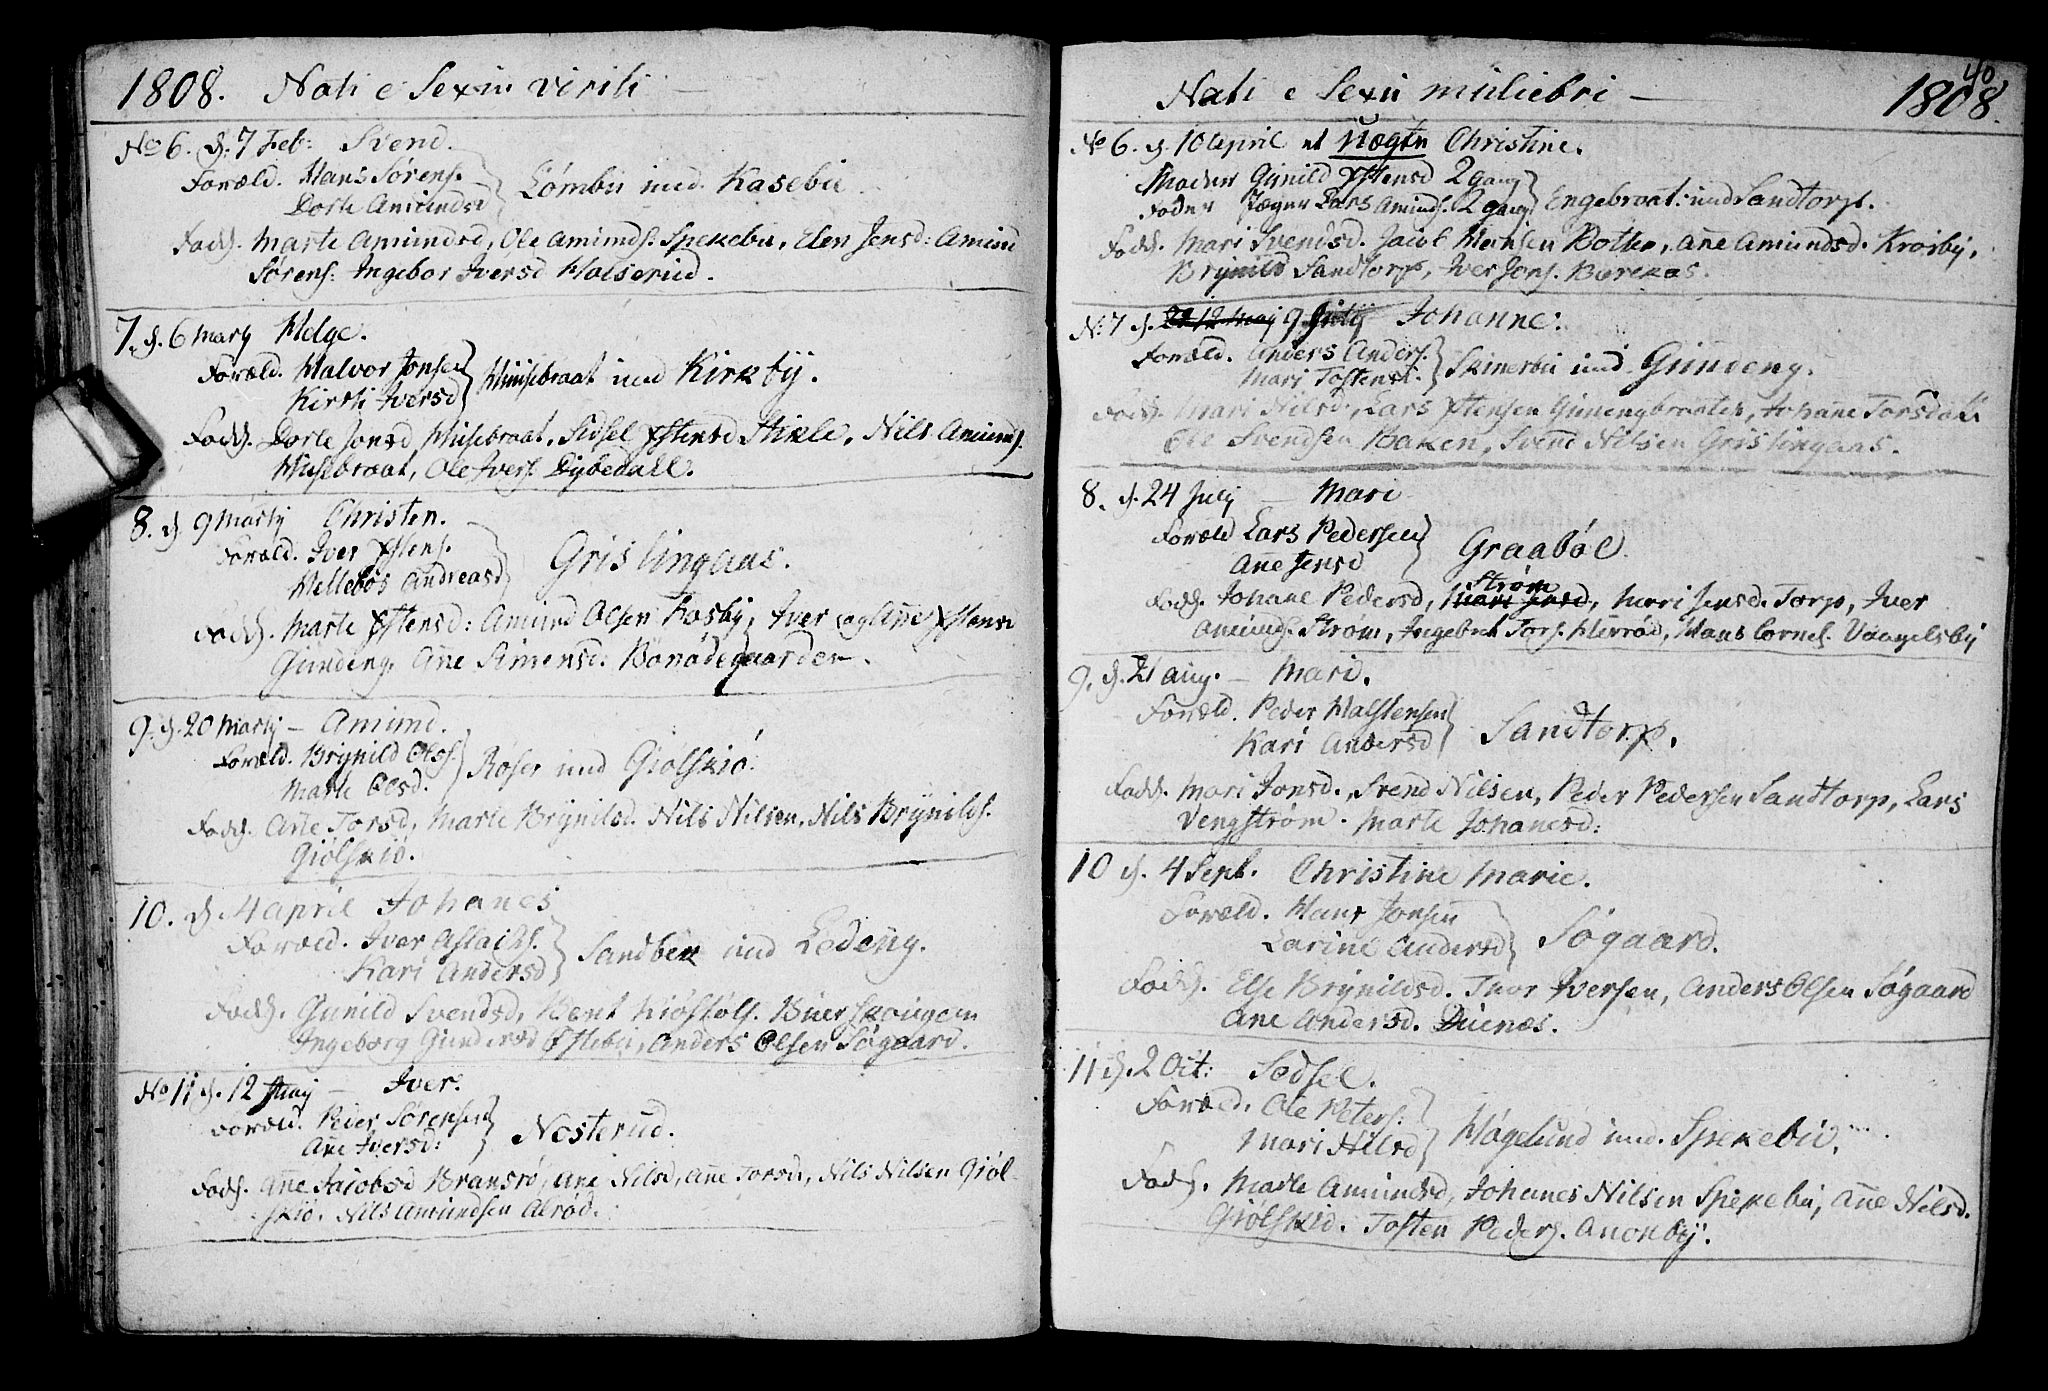 1808. Nati e Sexu virili —
No 6. d. 7 Feb: Svend.
Foræld. Hans Sørens.
Dorte Amundsd
Lømbu und. Kasebu
Fadd. Marte Amundsd, Ole Amunds. Spekebu, Elen Jensd: Amund
Sørens: Ingebor Iversd Holserud.
7. d. 6 Marty Helge.
Foræld. Halvor Jonsen
Kirsti Iversd
Husebraat und Kirkby.
Fadd. Dorte Jonsd Husebraat, Sidsel Ystensd Stikle, Nils Amunds.
Husebraat, Ole Ivers. Dybedall.
8. d 9 Marty Christen.
Foræld. Iver Ystens.
Hellebos Andreasd
Grislingaas.
Fadd. Marte Ystensd: Amund Olsen Kosby, Iver og Añe Ystens
Gundeng. Añe Simensd: Bonødegaarden.
9. d. 20 Marty — Amund.
Foræld. Brynild Ols.
Marte Olsd.
Røser und Giølskiø.
Fadd. Añe Torsd, Marte Brynilsd. Nils Nilsen, Nils Brynilds.
Giølskiø.
10. d 4 April Johanes
Foræld. Iver Aslachs.
Kari Andersd
Sandbek und Ledeng.
Fadd. Gunild Svendsd, Bent Kiøstols. Buerskougen
Ingeborg Gundersd Østebu, Anders Olsen Søgaard.
No 11 d. 12 May — Iver.
Foræld. Peder Sørensen
Añe Iversd:
Nosterud.
Fadd. Añe Jacobsd Bransrø, Añe Nilsd, Añe Torsd, Nils Nilsen Giøl-
skiø. Nils Amundsen Alrød.
40
Nati e Sexu muliebri — 1808.
No 6. d. 10 April et uægte Christine.
Moder Gunild Ystensd 2 gang
Fader Jæger Lars Amunds. 2 gang
Engebraat: und Sandtorp.
Fadd. Mari Svendsd. Jacob Hansen Botten, Añe Amundsd. Krosby,
Brynild Sandtorp, Iver Jons. Burekas.
No 7 d. 12 May 9 July Johanne:
Foræld. Anders Anders.
Mari Tostensd.
Skinerbu und Gundeng.
Fadd. Mari Nilsd, Lars Ystensen Gunengbraaten, Johañe Torsdat.
Ole Svendsen Baken, Svend Nilsen Grislingaas.
8. d. 24 July — Mari
Foræld Lars Pedersen
Añe Jensd
Graabøl.
Strøm
Fadd. Johane Pedersd, Mari Jensd, Mari Jensd. Torp, Iver
Amunds. Strøm, Ingebret Tors. Hersød, Hans Cornel. Vaagelsby
9. d. 21 Aug. — Mari.
Foræld. Peder Halstensen
Kari Andersd
Sandtorp.
Fadd. Mari Jonsd., Svend Nilsen, Peder Pedersen Sandtorp, Lars
Vengstrøm. Marte Johanesd:
10 d. 4 Sept. Christine Marie.
Foræld. Hans Jonsen
Larine Andersd
Søgaard.
Fadd. Else Brynildsd. Tuor Iversen, Anders Olsen Søgaard
Ane Andersd. Duenæs.
11 d. 2 Oct: Sodsel.
Foræld. Ole Peters.
Mari Nilsd
Høgelund und. Spekebu.
Fadd. Marte Amundsd, Johanes Nilsen Spekebu, Añe Nilsd.
Giølskiø. Tosten Peders. Anonby.